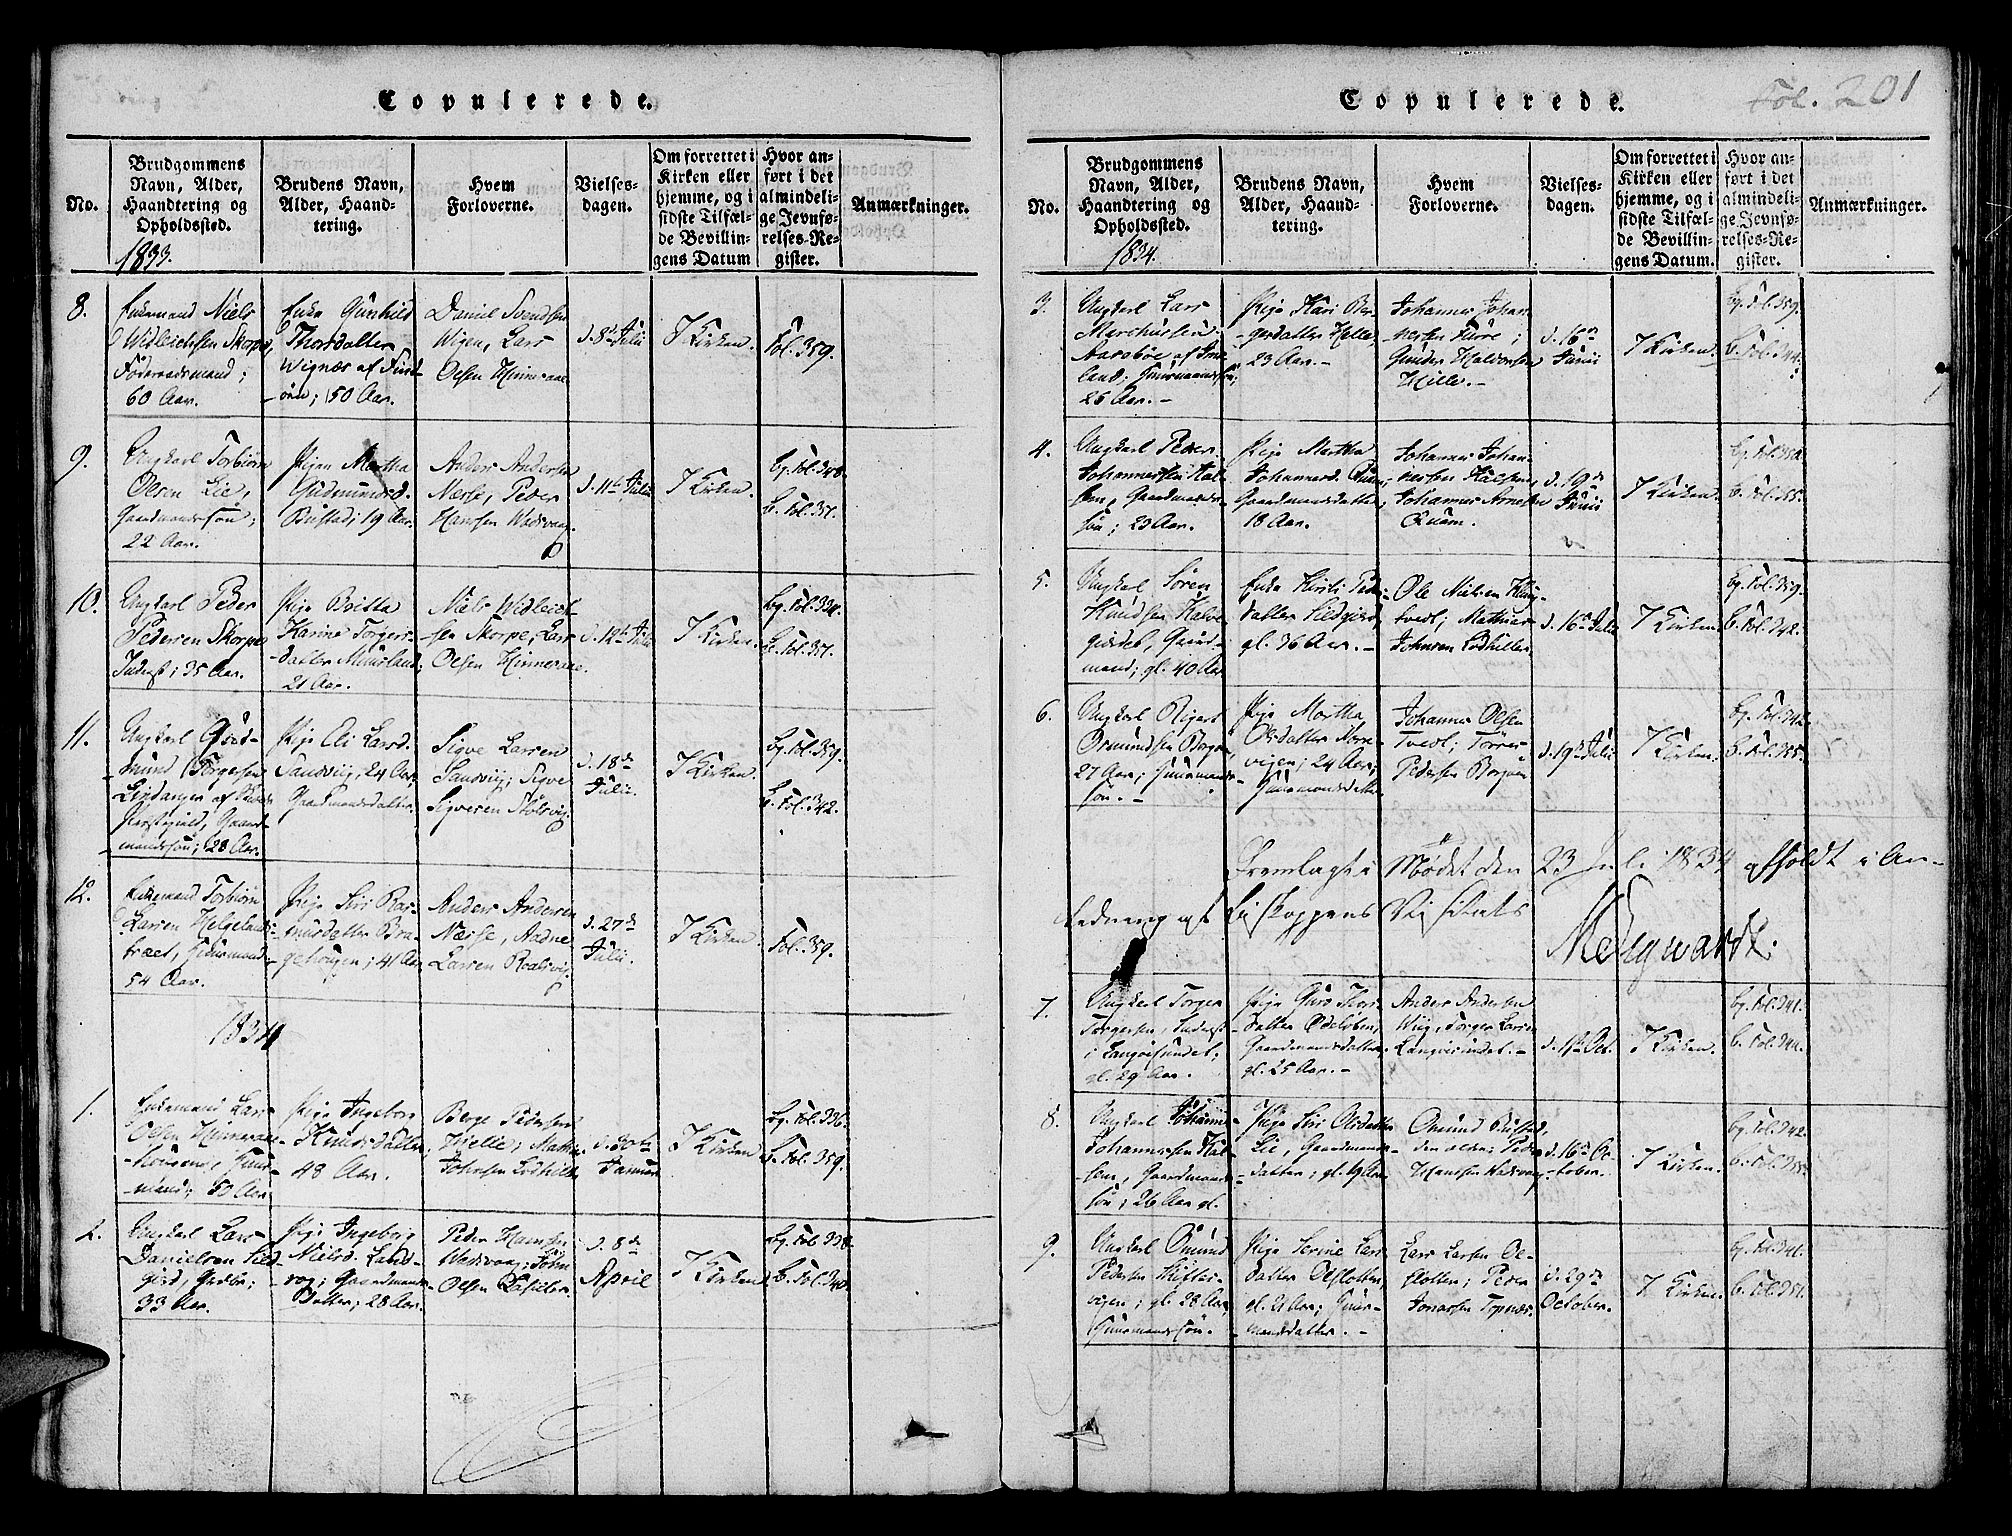 Copulerede.
No.
Brudgommens Navn, Alder, Haandtering og Opholdssted.
Brudens Navn, Alder, Haandtering.
Hvem Forloverne.
Vielsesdagen.
Om forrettet i Kirken eller hjemme, og i sidste Tilfælde Bevillingens Datum
Hvor anført i det almindelige Jevnførelses-Register.
Anmærkninger.
1833.
8.
Enkemand Niels
Widleichsen Skorpe,
Föderaadsmand;
60 Aar.
Enke Gunhild
Thorsdatter
Wignæs af Find-
öen; 50 Aar.
Daniel Svendsen
Wigen, Lars
Olsen Hinneraae
d. 8de Julii
I Kirken.
Fol. 359.
9.
Ungkarl Torbiörn
Olsen Lie,
Gaardmandssön;
22 Aar.
Pigen Martha
Gudmundsd.
Bustad; 19 Aar.
Anders Andersen
Næsse, Peder
Hansen Wadsvaag.
d. 11te Julii
I Kirken.
Bg. Fol. 348.
B. Fol. 357.
10.
Ungkarl Peder
Pedersen Skorpe
Inderst; 35 Aar.
Pige Britta
Karine Torgers-
datter Muusland,
21 Aar.
Niels Widleich-
sen Skorpe, Lars
Olsen Hinneraae.
d. 12te Julii
I Kirken.
Bg. Fol. 324.
B. Fol. 357.
11.
Ungkarl Gud-
mund Torgersen
Lindanger af
Præstegield, Gaard-
mandssön; 28 Aar.
Pige Eli Larsd.
Sandvig, 24 Aar,
Gaardmandsdatter.
Sigve Larsen
Sandvig; Sigve
Sigvesen Stölsvig.
d. 18de
Julii.
I Kirken.
Bg. Fol. 359.
B. Fol. 342.
12.
Enkemand Torbiörn
Larsen Helgelands-
træet, Huusmand
54 Aar.
Pige Siri Ras-
musdatter Bra-
gehougen; 41 Aar
Anders Andersen
Næsse, Aadne
Larsen Roalsvig
d. 27de
Julii.
I Kirken.
Fol. 359.
1834
1.
Enkemand Lars
Olsen Hinneraae-
hougen, Huus-
mand; 50 Aar.
Pige Ingebor
Knudsdatter,
48 Aar.
Berge Pedersen
Helle; Mathias
Johnsen Lodhille
d. 30te
Januar
I Kirken
Bg. Fol. 336.
B. Fol. 359.
2.
Ungkarl Lars
Danielsen Sed-
33 Aar.
Pige Ingeborg
Nielsd. Land-
vog; Gaardmands-
datter; 28 Aar.
Peder Hansen
Wadsvaag; John
Olsen
d. 8de
April
I Kirken
Bg. Fol. 328.
B. Fol. 340.
Copulerede.
Fol. 201
No.
Brudgommens Navn, Alder, Haandtering og Opholdssted.
Brudens Navn, Alder, Haandtering.
Hvem Forloverne.
Vielsesdagen.
Om forrettet i Kirken eller hjemme, og i sidste Tilfælde Bevillingens Datum.
Hvor anført i det almindelige Jevnførelses-Register.
Anmærkninger.
1834.
3.
Ungkarl Lars
Aarsböe af
land; Huusmandssön;
25 Aar. –
Pige Kari Ber-
gesdatter Helle,
23 Aar. –
Johannes Johan-
nesen Furre;
Gunder Halvorsen
Hille. –
d. 16de
Junii
I Kirken.
Bg. Fol. 359.
B. Fol. 344.
4.
Ungkarl Peder
Johannessen Hal-
sen, Gaardmands-
sön; 23 Aar.
Pige Martha
Johannesd. Quam;
Gaardmandsdatter,
18 Aar.
Johannes Johan-
nesen Halsen,
Johannes Arnesen
Quam.
d. 19de
Junii
I Kirken.
B. Fol. 355.
5.
Ungkarl Sören
Knudsen Halve-
gierdet, Gaard-
mand; gl. 40 Aar
Enke Kirsti Peders-
datter Sedgierd,
gl. 36 Aar. –
Ole Nielsen
tvedt; Mathias
Johnsen Lodhille.
d. 16de Julii
I Kirken.
Bg. Fol. 359.
B. Fol. 342.
6.
Ungkarl
Osmundsen Borgöe
27 Aar; Huusmands-
sön. –
Pige Martha
Olsdatter Norr-
vigen; 24 Aar;
Huusmandsdatter.
Johannes Olsen
Tvedt; Törres
Pedersen Borgöe
d. 19de Julii
I Kirken.
Bg. Fol. 342.
B. Fol. 355.
Fremlagt i Mødet den 23 Juli 1834 afholdt i An-
ledning af Biskoppens Visitats
7.
Ungkarl Torger
Torgersen, Inderst
i Langöesundet,
gl. 29 Aar.
Pige Guro Thors-
datter Ödelöben,
Gaardmandsdatter.
gl. 25 Aar. –
Anders Andersen
Wiig, Torger Larsen
Langöesundet. –
d. 1ste Oct.
I Kirken.
Bg. Fol. 341.
B. Fol. 344.
8.
Ungkarl Johannes
Johannessen Hal-
sen, Gaardmands-
sön; 26 Aar gl.
Pige Siri Olsdatter
Lie, Gaardmands-
datter; gl. 19 Aar.
Omund Bustad,
den ældre; Peder
Hansen Wadsvaag
d. 16de Oc-
tober.
I Kirken.
Bg. Fol. 342.
B. Fol. 355.
9.
Ungkarl Omund
Pedersen Skifter-
vigen; gl. 28 Aar,
Huusmandssön.
Pige Serine Lars-
datter Oltflotten,
gl. 21 Aar; Huus-
mandsdatter. –
Lars Larsen Ol-
flotten; Peder
Jonassen Topnæs.
d. 29de
October.
I Kirken.
Bg. Fol. 341.
B. Fol. 351.